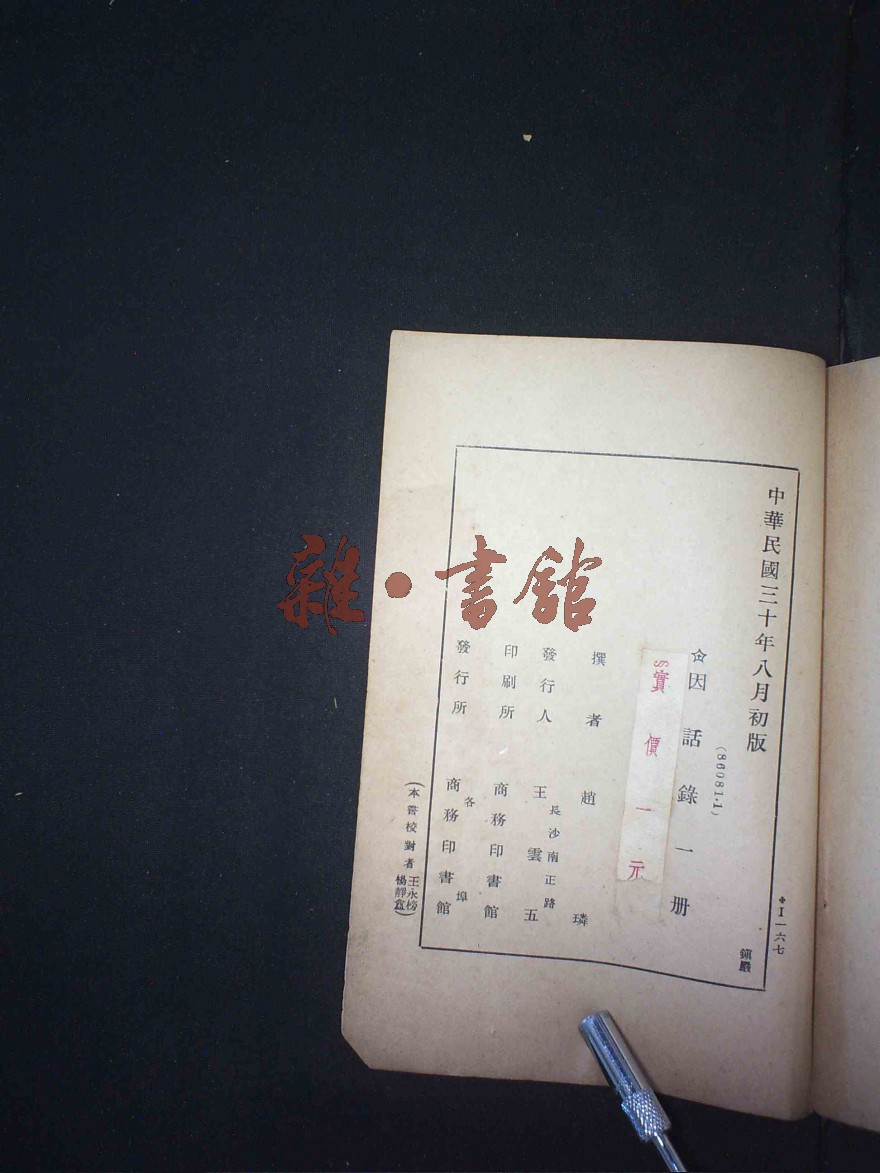 中華民國三十年八月初版
(86081.1)
因話錄一册
實價一元
撰者 趙璘
發行人 王雲五
長沙南正路
印刷所 商務印書館
發行所 商務印書館
各埠
(本書校對者 王永榜
楊靜盦)
I一六七
雜·書館